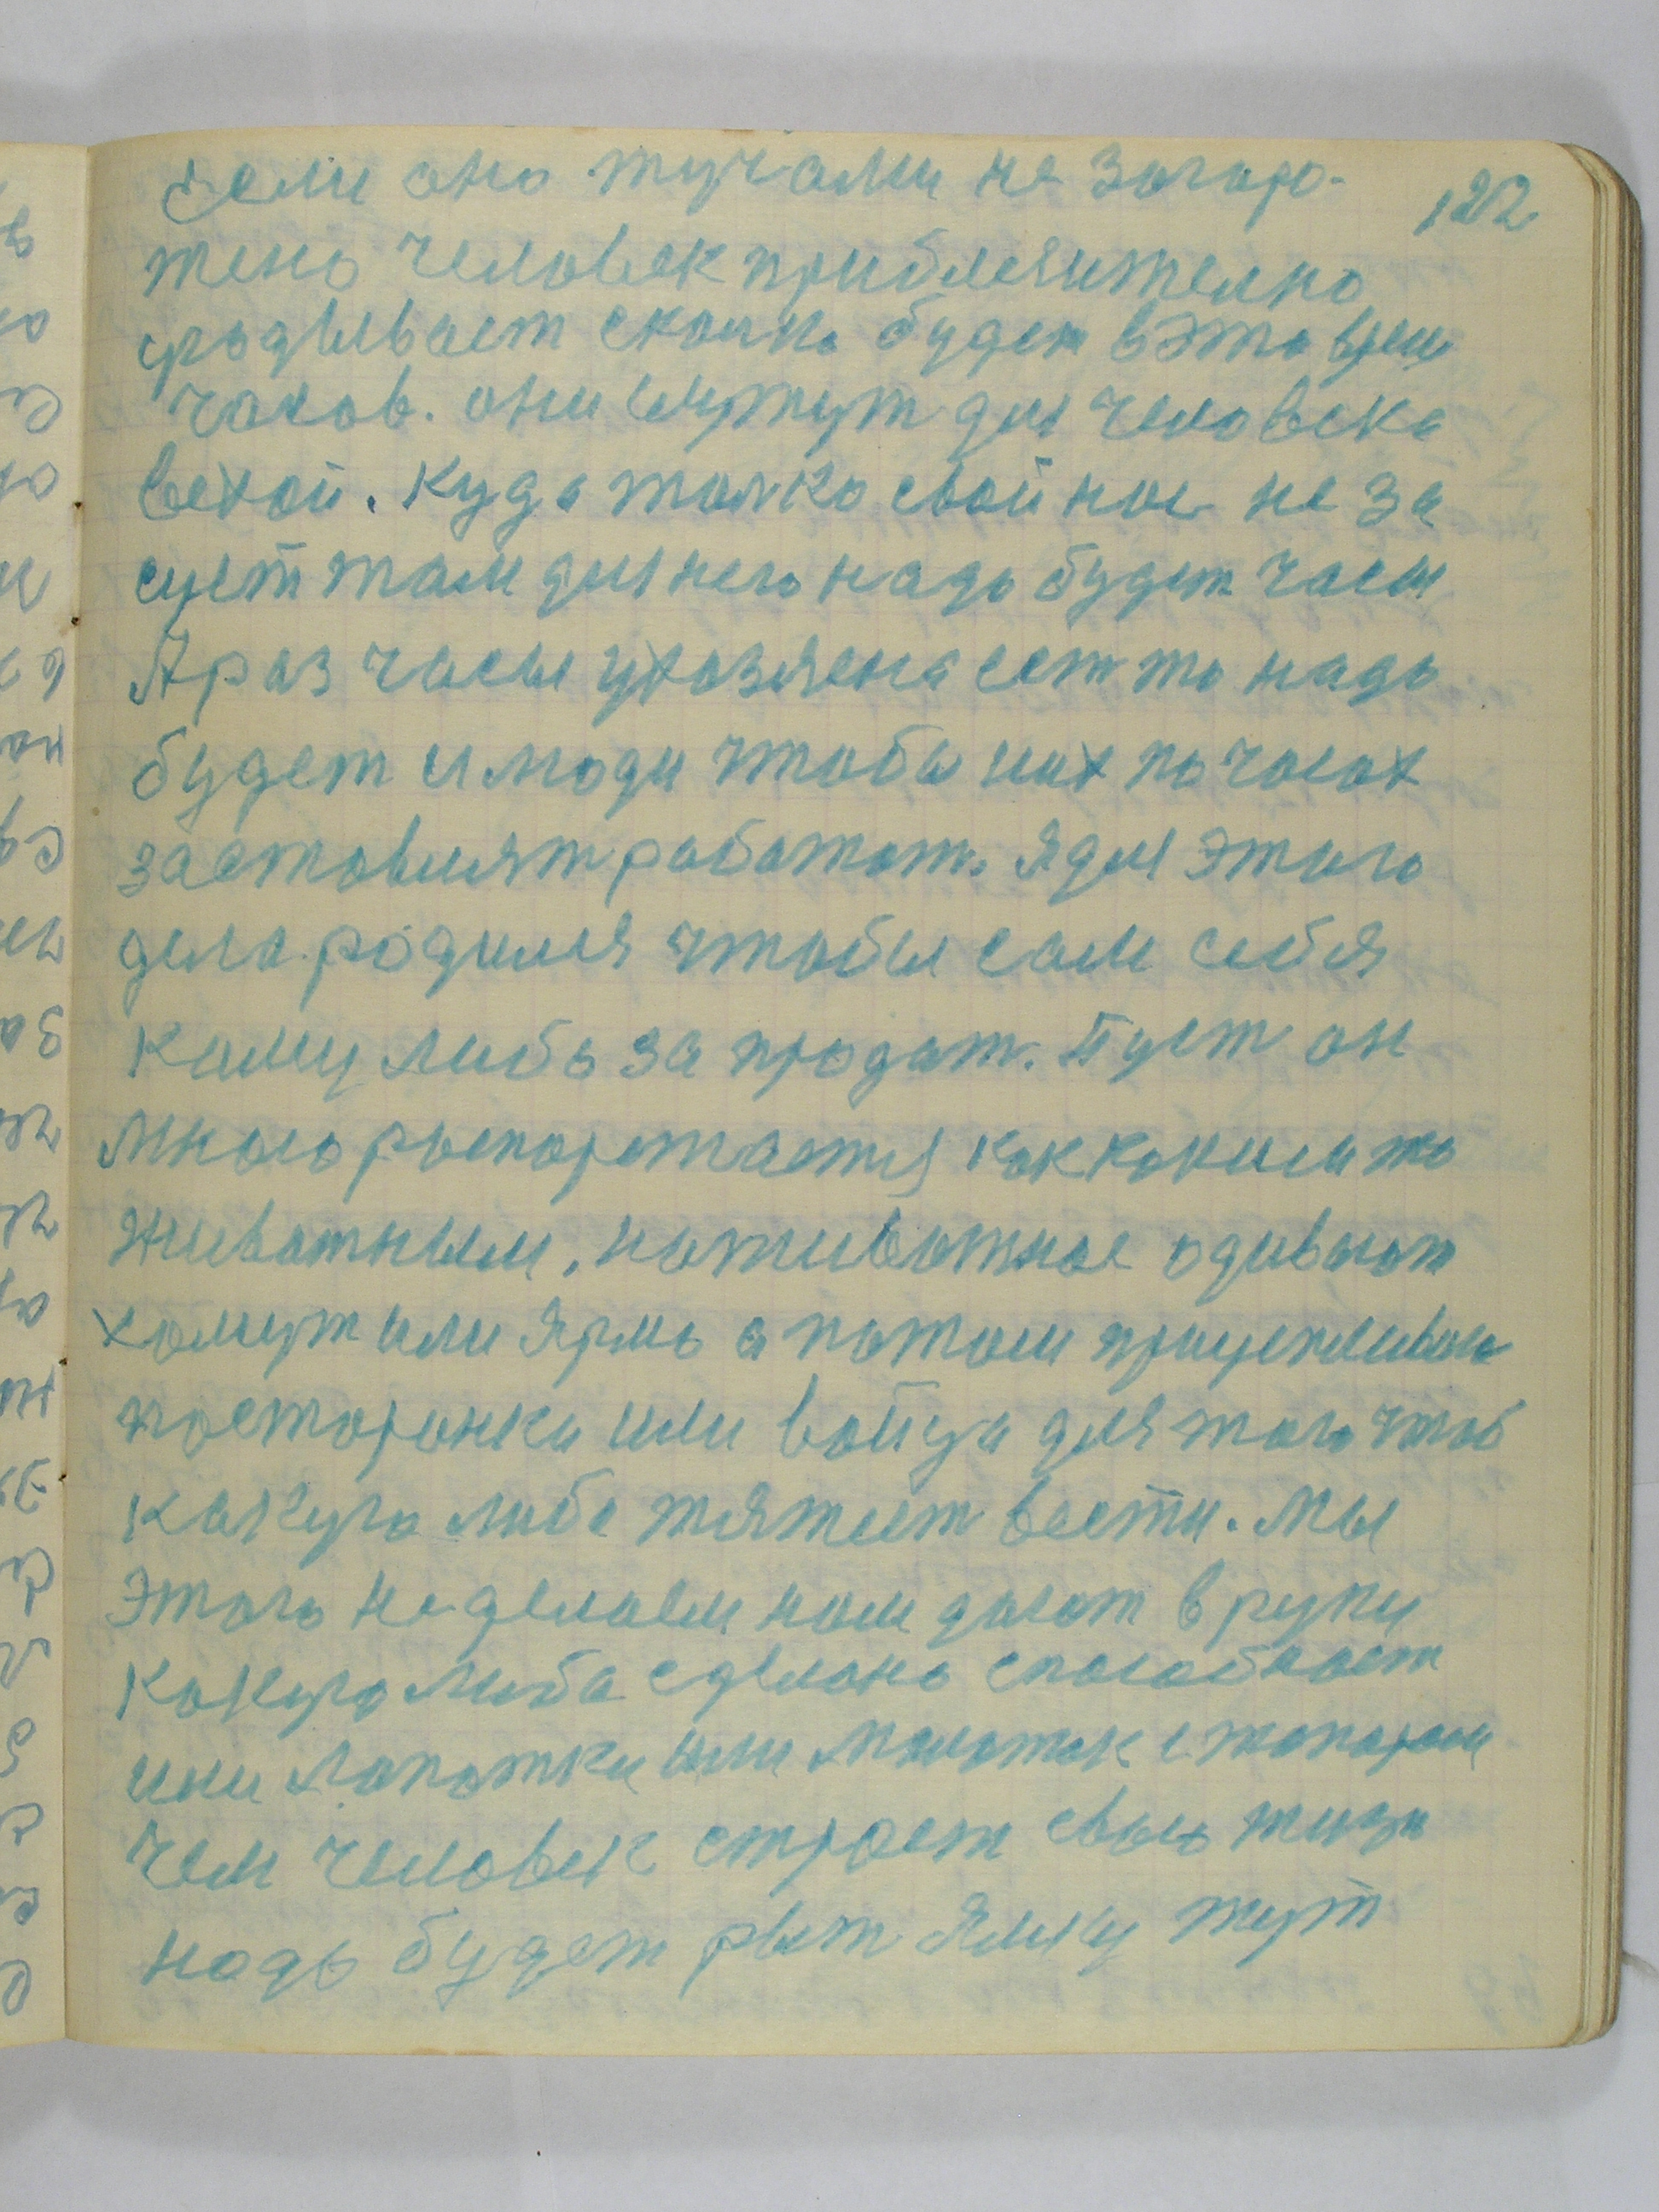 Если оно тучами не загоро-
122
жено человек приблезително
угадывает сколко будет в это время
часов. они служут для человека
вехой. Куда толко свой нос не за
сует там для него надо будет часы
А раз часы у хозяена ест то надо
будет и люди чтобы иих по часах
заставлят работат. Я для этого
дела родился чтобы сам себя
кому либо за продат. Пуст он
мною роспоряжается как каким то
животным. на животное одивают
хомут или ярмо а потом прицепливают
посторонки или войуа для того чтоб
какуго либо тяжест вести. Мы
этого не делаем нам дают в руки
какуго либо сделано способност
или лопатки или молоток с топаром
чем человек строет свою жизн
надо будет рыт ямку тут